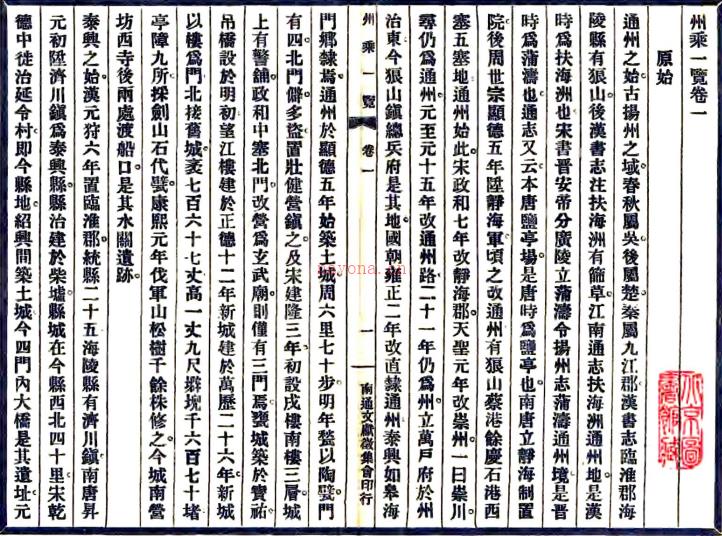 州乘一覽卷一
原始
通州之始古揚州之域春秋屬吳後屬楚秦屬九江郡漢書志臨淮郡海
陵縣有狼山後漢書志注扶海洲有篩草江南通志扶海洲通州地是漢
時爲扶海洲也宋書晉安帝分廣陵立蒲濤令揚州志蒲濤通州境是晉
時爲蒲濤也通志又云本唐鹽亭場是唐時爲鹽亭也南唐立靜海制置
院後周世宗顯德五年陞靜海軍頃之改通州有狼山蔡港餘慶石港西
塞五塞地通州始此宋政和七年改靜海郡天聖元年改崇州一曰崇川
尋仍爲通州元至元十五年改通州路二十一年仍爲州立萬戶府於州
治東今狼山鎮總兵府是其地國朝雍正二年改直隸通州泰興如皋海
州乘一覽
卷一
一
南通文獻徵集會印行
門鄉隸焉通州於顯德五年始築土城周六里七十步明年甃以陶甓門
有四北門僻多盜置壯健營鎮之及宋建隆三年初設戌樓南樓三層城
上有警鋪政和中塞北門改營爲玄武廟則僅有三門焉甕城築於寶祐
吊橋設於明初望江樓建於正德十二年新城建於萬歷二十六年新城
以樓爲門北接舊城袤七百六十七丈高一丈九尺擗堄千六百七十堵
亭障九所採劍山石代甓康熙元年伐軍山松樹千餘株修之今城南營
坊西寺後兩處渡船口是其水關遺跡
泰興之始漢元狩六年置臨淮郡統縣二十五海陵縣有濟川鎮南唐昇
元初陞濟川鎮爲泰興縣縣治建於柴墟縣城在今縣西北四十里宋乾
德中徙治延令村即今縣地紹興間築土城今四門內大橋是其遺址元